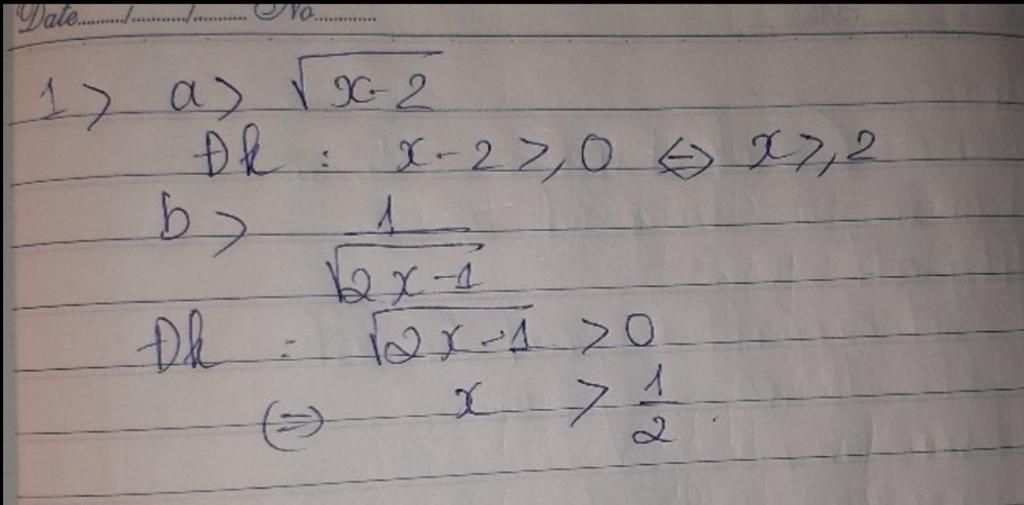 Date......../........../.......... No............
1> a> √(x-2)
Đk : x-2 ≥ 0 ⇔ x ≥ 2
b> 1/√(2x-1)
Đk : √(2x-1) > 0
⇔ x > 1/2.